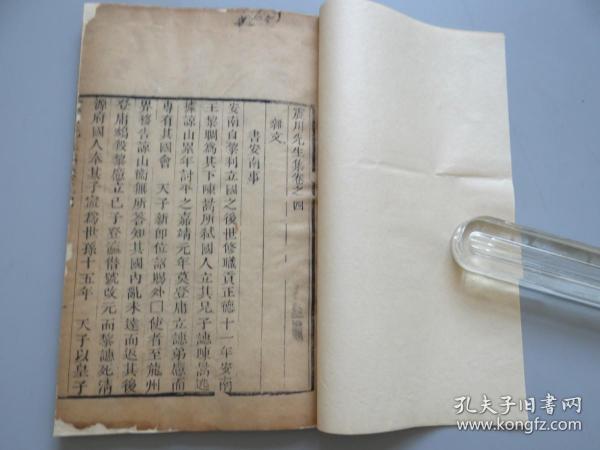 震川先生集卷之四
雜文
書安南事
安南自黎利立國之後世修職貢正德十一年安南
王黎賙爲其下陳暠所弒國人立其兄子譓陳暠逃
據諒山累年討平之嘉靖元年莫登庸立譓弟懬而
專有其國會 天子新卽位詔賜外囗使者至龍州
界移告諒山衞無所答知其國內亂未達而返其後
登庸鴆殺黎懬立己子登瀛僭號改元而黎譓死淸
源府國人奉其子寧爲世孫十五年 天子以皇子
孔夫子旧书网
www.kongfz.com